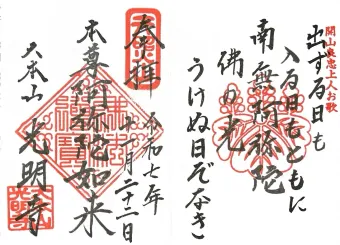 開山良忠上人お歌
出ずる日も
入る日もともに
南無阿弥陀
佛の光
うけぬ日ぞなき
奉拝
令和七年
月二十二日
本尊阿弥陀如来
大本山 光明寺